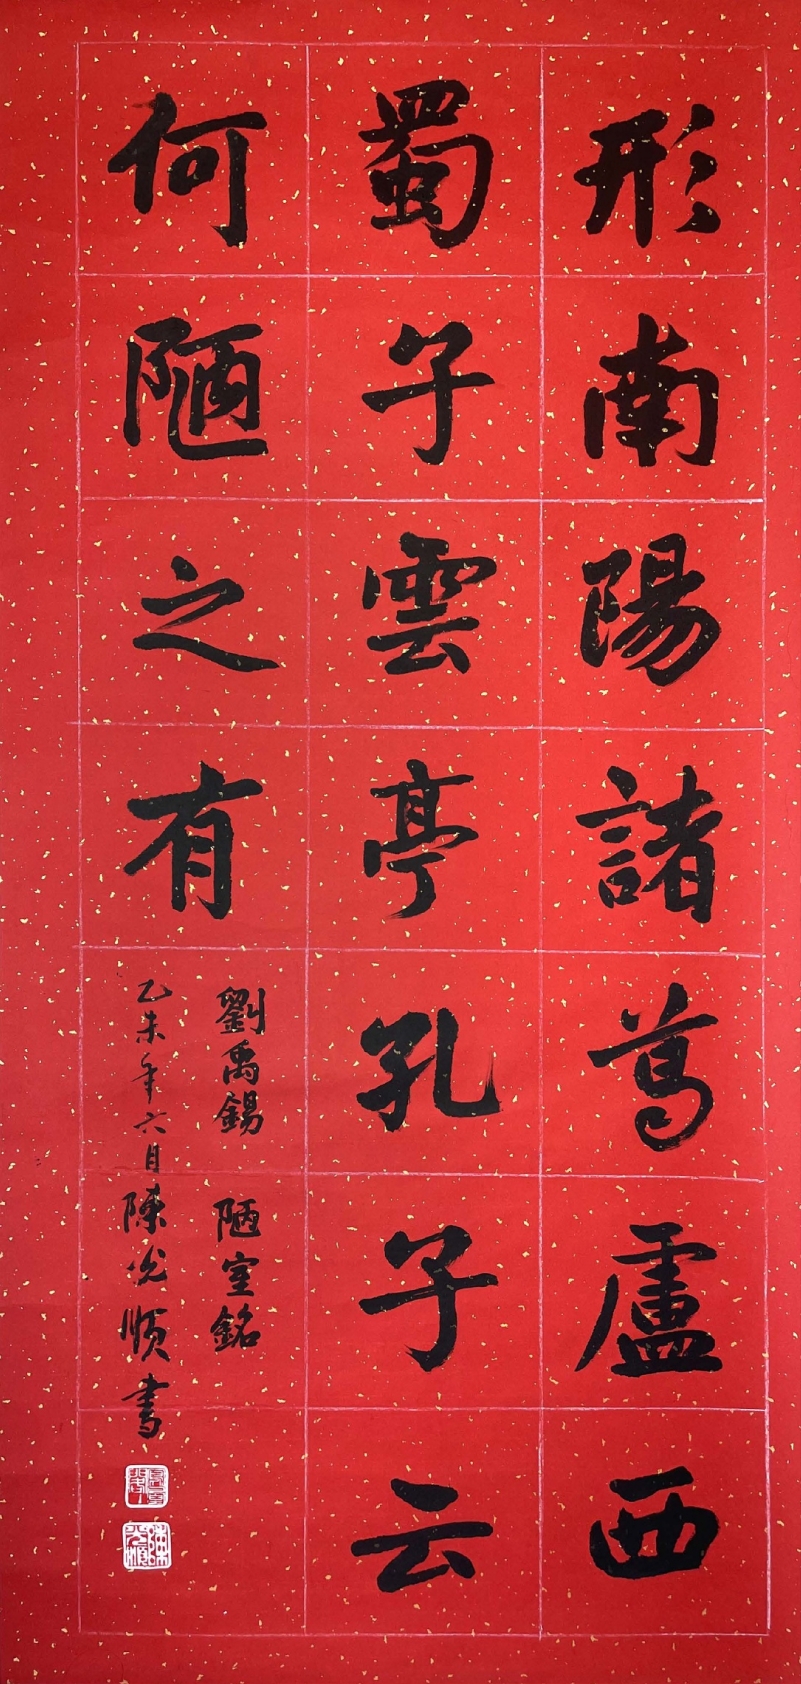 形南陽諸葛廬西
蜀子雲亭孔子云
何陋之有
劉禹錫 陋室銘
乙未年六月陳光順書